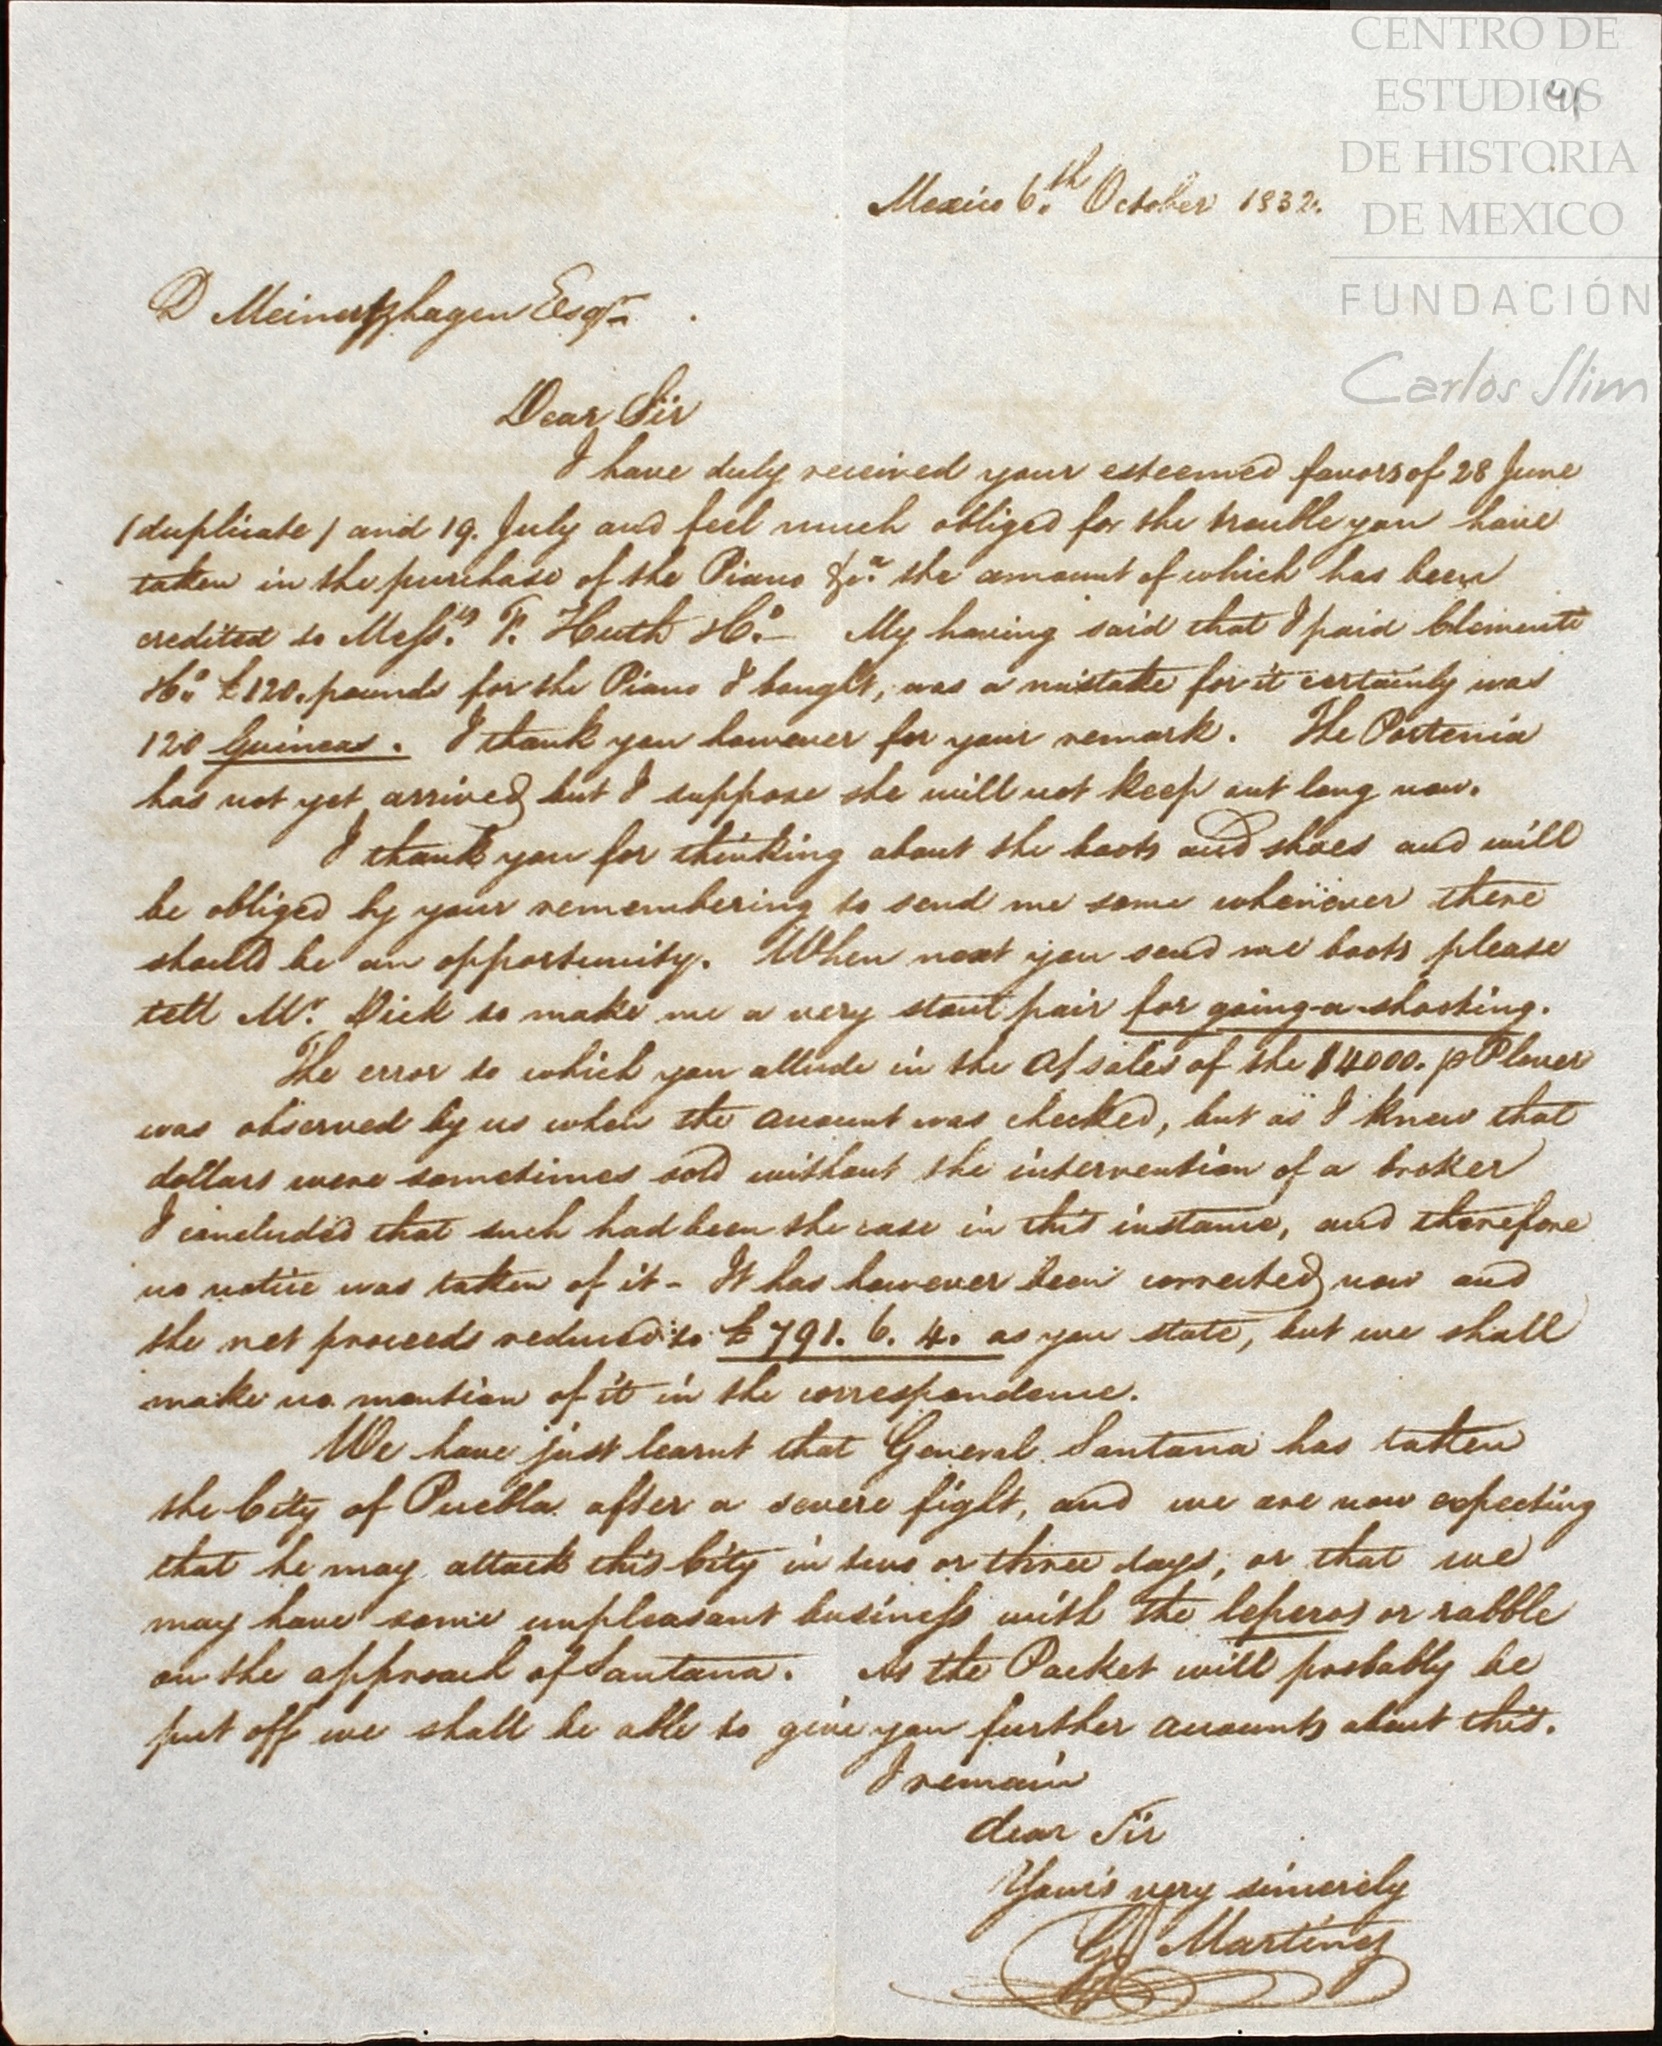 CENTRO DE
ESTUDIOS
DE HISTORIA
DE MEXICO
FUNDACIÓN
Carlos Slim
41
Mexico 6.th October 1832.
D Meinertzhagen Esqr.
Dear Sir
I have duly received your esteemed favors of 28 June
(duplicate) and 19. July and feel much obliged for the trouble you have
taken in the purchase of the Piano &ca. the amount of which has been
credited to Messrs. F. Huth & Co. — My having said that I paid Clementi
& Co. £120. pounds for the Piano I bought, was a mistake for it certainly was
120 Guineas. I thank you however for your remark. The Portenia
has not yet arrived but I suppose she will not keep out long now.
I thank you for thinking about the boots and shoes and will
be obliged by your remembering to send me some whenever there
should be an opportunity. When next you send me boots please
tell Mr. Dick to make me a very stout pair for going-a-shooting.
The error to which you allude in the a/ sales of the $4000. p Plover
was observed by us when the account was checked, but as I knew that
dollars were sometimes sold without the intervention of a broker
I concluded that such had been the case in this instance, and therefore
no notice was taken of it - It has however been corrected now and
the net proceeds reduced to £791. 6. 4. as you state, but we shall
make no mention of it in the correspondence.
We have just learnt that General Santana has taken
the City of Puebla after a severe fight, and we are now expecting
that he may attack this City in two or three days, or that we
may have some unpleasant business with the leperos or rabble
on the approach of Santana. As the Packet will probably be
put off we shall be able to give you further accounts about this.
I remain
dear Sir
Yours very sincerely
Martinez